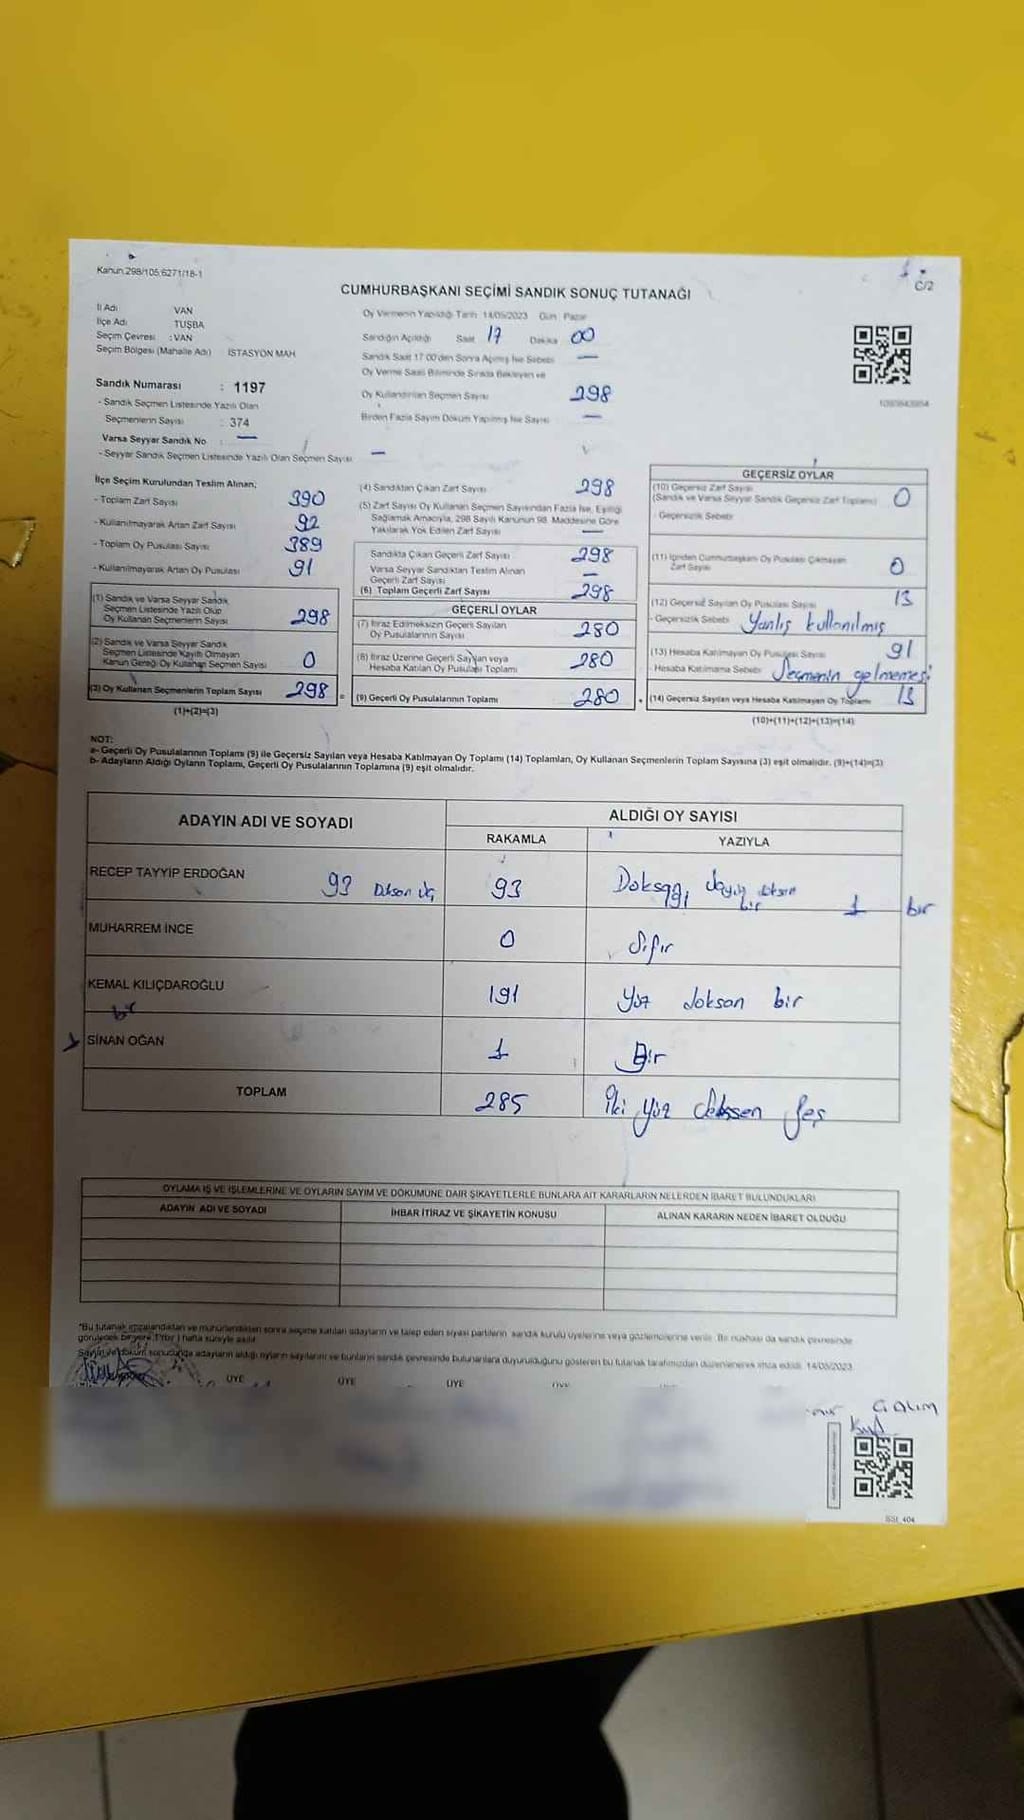 Kanun 298/105,6271/18-1
C/2
CUMHURBAŞKANI SEÇİMİ SANDIK SONUÇ TUTANAĞI
İl Adı VAN
İlçe Adı TUŞBA
Seçim Çevresi : VAN
Seçim Bölgesi (Mahalle Adı) İSTASYON MAH
Sandık Numarası : 1197
- Sandık Seçmen Listesinde Yazılı Olan
Seçmenlerin Sayısı : 374
Varsa Seyyar Sandık No : —
- Seyyar Sandık Seçmen Listesinde Yazılı Olan Seçmen Sayısı —
Oy Vermenin Yapıldığı Tarih 14/05/2023 Gün Pazar
Sandığın Açıldığı Saat 17 Dakika 00
Sandık Saat 17:00'den Sonra Açılmış İse Sebebi —
Oy Verme Saati Bitiminde Sırada Bekleyen ve
Oy Kullandırılan Seçmen Sayısı 298
Birden Fazla Sayım Döküm Yapılmış İse Sayısı —
İlçe Seçim Kurulundan Teslim Alınan;
- Toplam Zarf Sayısı 390
- Kullanılmayarak Artan Zarf Sayısı 92
- Toplam Oy Pusulası Sayısı 389
- Kullanılmayarak Artan Oy Pusulası 91
(1) Sandık ve Varsa Seyyar Sandık
Seçmen Listesinde Yazılı Olup
Oy Kullanan Seçmenlerin Sayısı 298
(2) Sandık ve Varsa Seyyar Sandık
Seçmen Listesinde Kayıtlı Olmayan
Kanun Gereği Oy Kullanan Seçmen Sayısı 0
(3) Oy Kullanan Seçmenlerin Toplam Sayısı 298 =
(1)+(2)=(3)
(4) Sandıktan Çıkan Zarf Sayısı 298
(5) Zarf Sayısı Oy Kullanan Seçmen Sayısından Fazla İse, Eşitliği
Sağlamak Amacıyla, 298 Sayılı Kanunun 98. Maddesine Göre
Yakılarak Yok Edilen Zarf Sayısı —
Sandıkta Çıkan Geçerli Zarf Sayısı 298
Varsa Seyyar Sandıktan Teslim Alınan
Geçerli Zarf Sayısı —
(6) Toplam Geçerli Zarf Sayısı 298
GEÇERLİ OYLAR
(7) İtiraz Edilmeksizin Geçerli Sayılan
Oy Pusulalarının Sayısı 280
(8) İtiraz Üzerine Geçerli Sayılan veya
Hesaba Katılan Oy Pusulası Toplamı 280
(9) Geçerli Oy Pusulalarının Toplamı 280 +
GEÇERSİZ OYLAR
(10) Geçersiz Zarf Sayısı
(Sandık ve Varsa Seyyar Sandık Geçersiz Zarf Toplamı) 0
- Geçersizlik Sebebi
(11) İçinden Cumhurbaşkanı Oy Pusulası Çıkmayan
Zarf Sayısı 0
(12) Geçersiz Sayılan Oy Pusulası Sayısı 13
- Geçersizlik Sebebi Yanlış kullanılmış
(13) Hesaba Katılmayan Oy Pusulası Sayısı 91
- Hesaba Katılmama Sebebi Seçmenin gelmemesi
(14) Geçersiz Sayılan veya Hesaba Katılmayan Oy Toplamı 13
(10)+(11)+(12)+(13)=(14)
NOT:
a- Geçerli Oy Pusulalarının Toplamı (9) ile Geçersiz Sayılan veya Hesaba Katılmayan Oy Toplamı (14) Toplamları, Oy Kullanan Seçmenlerin Toplam Sayısına (3) eşit olmalıdır. (9)+(14)=(3)
b- Adayların Aldığı Oyların Toplamı, Geçerli Oy Pusulalarının Toplamına (9) eşit olmalıdır.
ADAYIN ADI VE SOYADI
ALDIĞI OY SAYISI
RAKAMLA YAZIYLA
RECEP TAYYİP ERDOĞAN 93 Doksan üç 93 bir 1 bir
MUHARREM İNCE 0 Sıfır
KEMAL KILIÇDAROĞLU 191 Yüz doksan bir
bir
1 SİNAN OĞAN 1 Bir
TOPLAM 285 İki yüz beş
OYLAMA İŞ VE İŞLEMLERİNE VE OYLARIN SAYIM VE DÖKÜMÜNE DAİR ŞİKAYETLERLE BUNLARA AİT KARARLARIN NELERDEN İBARET BULUNDUKLARI
ADAYIN ADI VE SOYADI İHBAR İTİRAZ VE ŞİKAYETİN KONUSU ALINAN KARARIN NEDEN İBARET OLDUĞU
*Bu tutanak imzalandıktan ve mühürlendikten sonra seçime katılan adayların ve talep eden siyasi partilerin sandık kurulu üyelerine veya gözlemcilerine verilir. Bir nüshası da sandık çevresinde
görülecek bir yere 1 (bir) hafta süreyle asılır.
Sayım ve döküm sonucunda adayların aldığı oyların sayılarını ve bunların sandık çevresinde bulunanlara duyurulduğunu gösteren bu tutanak tarafımızdan düzenlenerek imza edildi. 14/05/2023
ÜYE ÜYE ÜYE
SSI_404